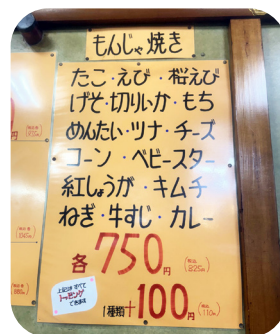 もんじゃ焼き
たこ・えび・桜えび
げそ・切りいか・もち
めんたい・ツナ・チーズ
コーン・ベビースター
紅しょうが・キムチ
ねぎ・牛すじ・カレー
各750円(税込825円)
上記はすべて
トッピング
できます
1種類+100円(税込110円)